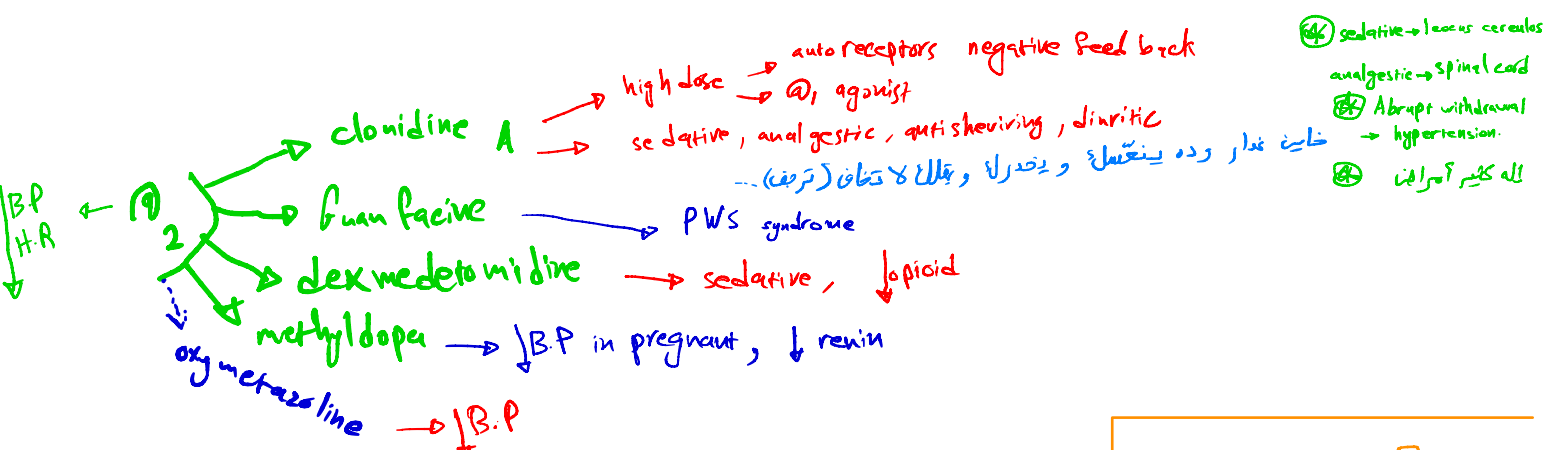 autoreceptors negative feed back
high dose
@1 agonist
clonidine A
sedative, analgestic, antisheviring, diuritic
خاين غدار وده ينعّسك و يخدرك و يقلك لا تخاف (ترجف)...
@2
B.P
H.R
Guanfacine
PWS syndrome
dexmedetomidine
sedative, ↓opioid
methyldopa
↓B.P in pregnant, ↓ renin
oxymetazoline
↓B.P
sedative→locus cereulos
analgestic→spinal cord
Abrupt withdrawal
→ hypertension.
اله كثير أمراض